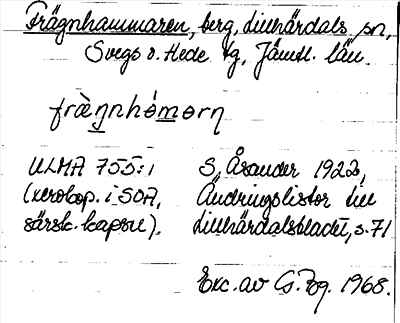 Frägnhammaren, berg, Lillhärdals sn,
Svegs o. Hede tg, Jämtl. län.
fräŋnhòmorn
ULMA 755:1 S. Åsander 1922,
(xerokop. i SOA, Ändringslistor till
särsk. kapsel). Lillhärdalsbladet, s. 71
Exc. av G. Bg. 1968.